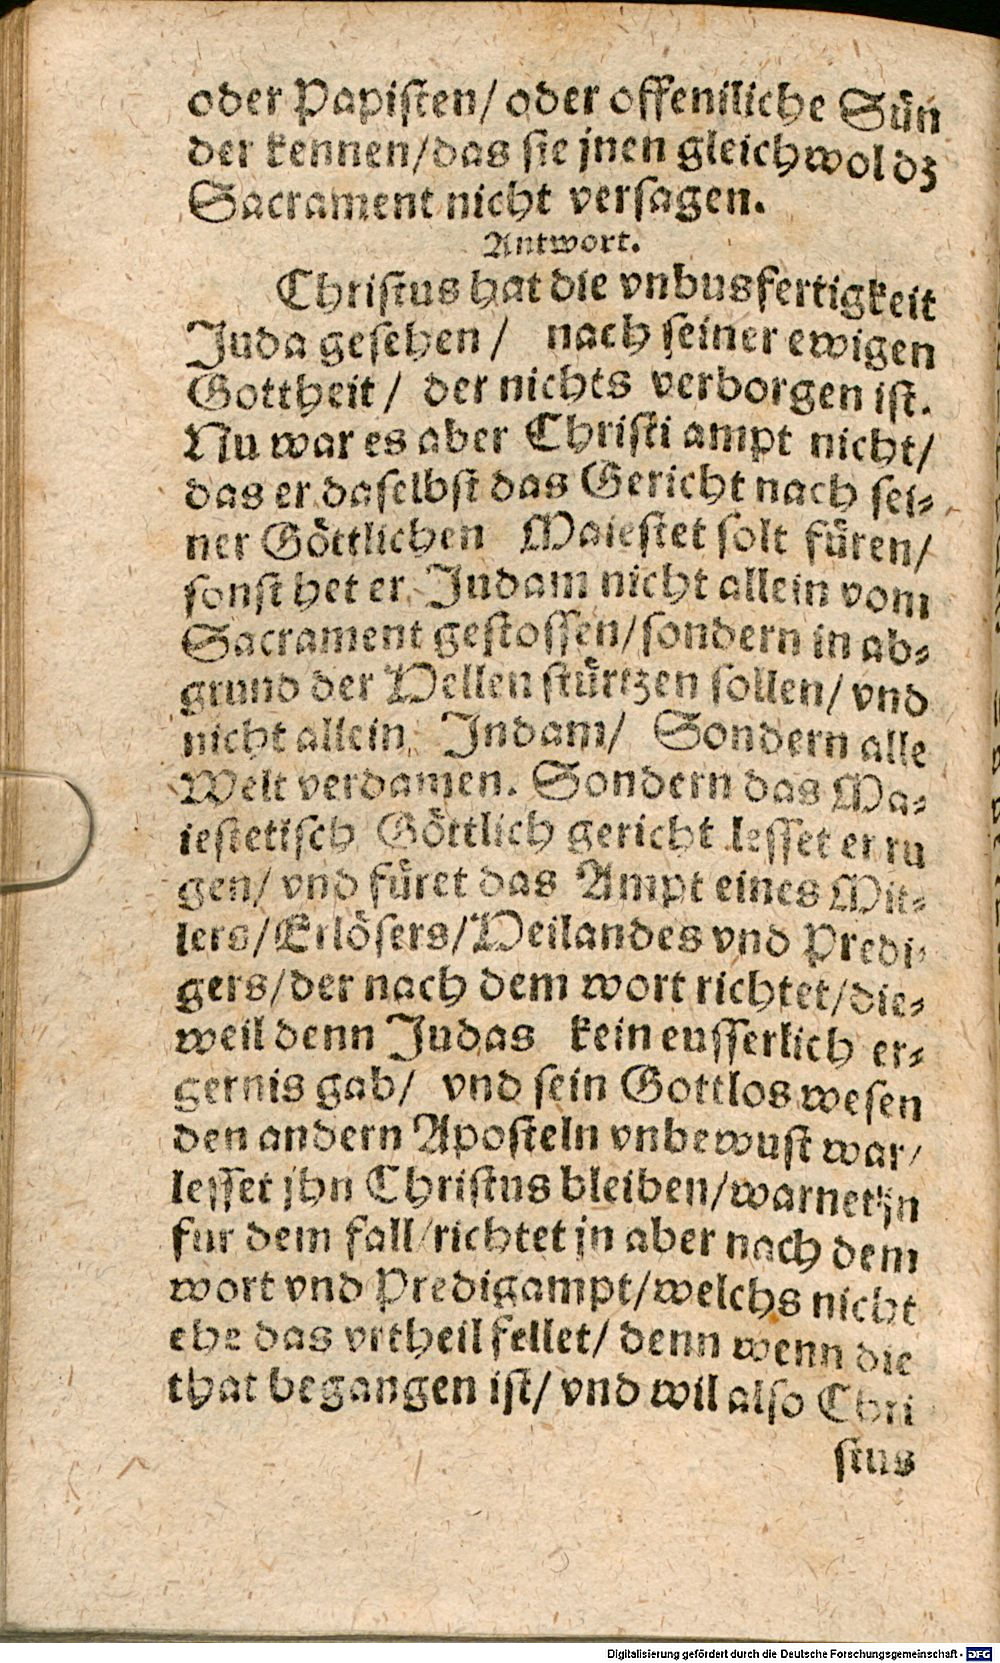 oder Papiſten/ oder offentliche Sün
der kennen/das ſie jnen gleichwol dz
Sacrament nicht verſagen.
Antwort.
Chriſtus hat die vnbusfertigkeit
Juda geſehen/ nach ſeiner ewigen
Gottheit/ der nichts verborgen iſt.
Nu war es aber Chriſti ampt nicht/
das er daſelbſt das Gericht nach ſei⸗
ner Göttlichen Maieſtet ſolt füren/
ſonſt het er Judam nicht allein vom
Sacrament geſtoſſen/ſondern in ab⸗
grund der Hellen ſtürtzen ſollen/ vnd
nicht allein Judam/ Sondern alle
Welt verdamen. Sondern das Ma⸗
ieſtetiſch Göttlich gericht leſſet er ru
gen/ vnd füret das Ampt eines Mit⸗
lers/Erlöſers/Heilandes vnd Predi⸗
gers/der nach dem wort richtet/die⸗
weil denn Judas kein euſſerlich er⸗
gernis gab/ vnd ſein Gottlos weſen
den andern Apoſteln vnbewuſt war/
leſſet jhn Chriſtus bleiben/warnet jn
fur dem fall/richtet jn aber nach dem
wort vnd Predigampt/welchs nicht
ehe das vrtheil fellet/ denn wenn die
that begangen iſt/ vnd wil alſo Chri
ſtus
Digitalisierung gefördert durch die Deutsche Forschungsgemeinschaft - DFG